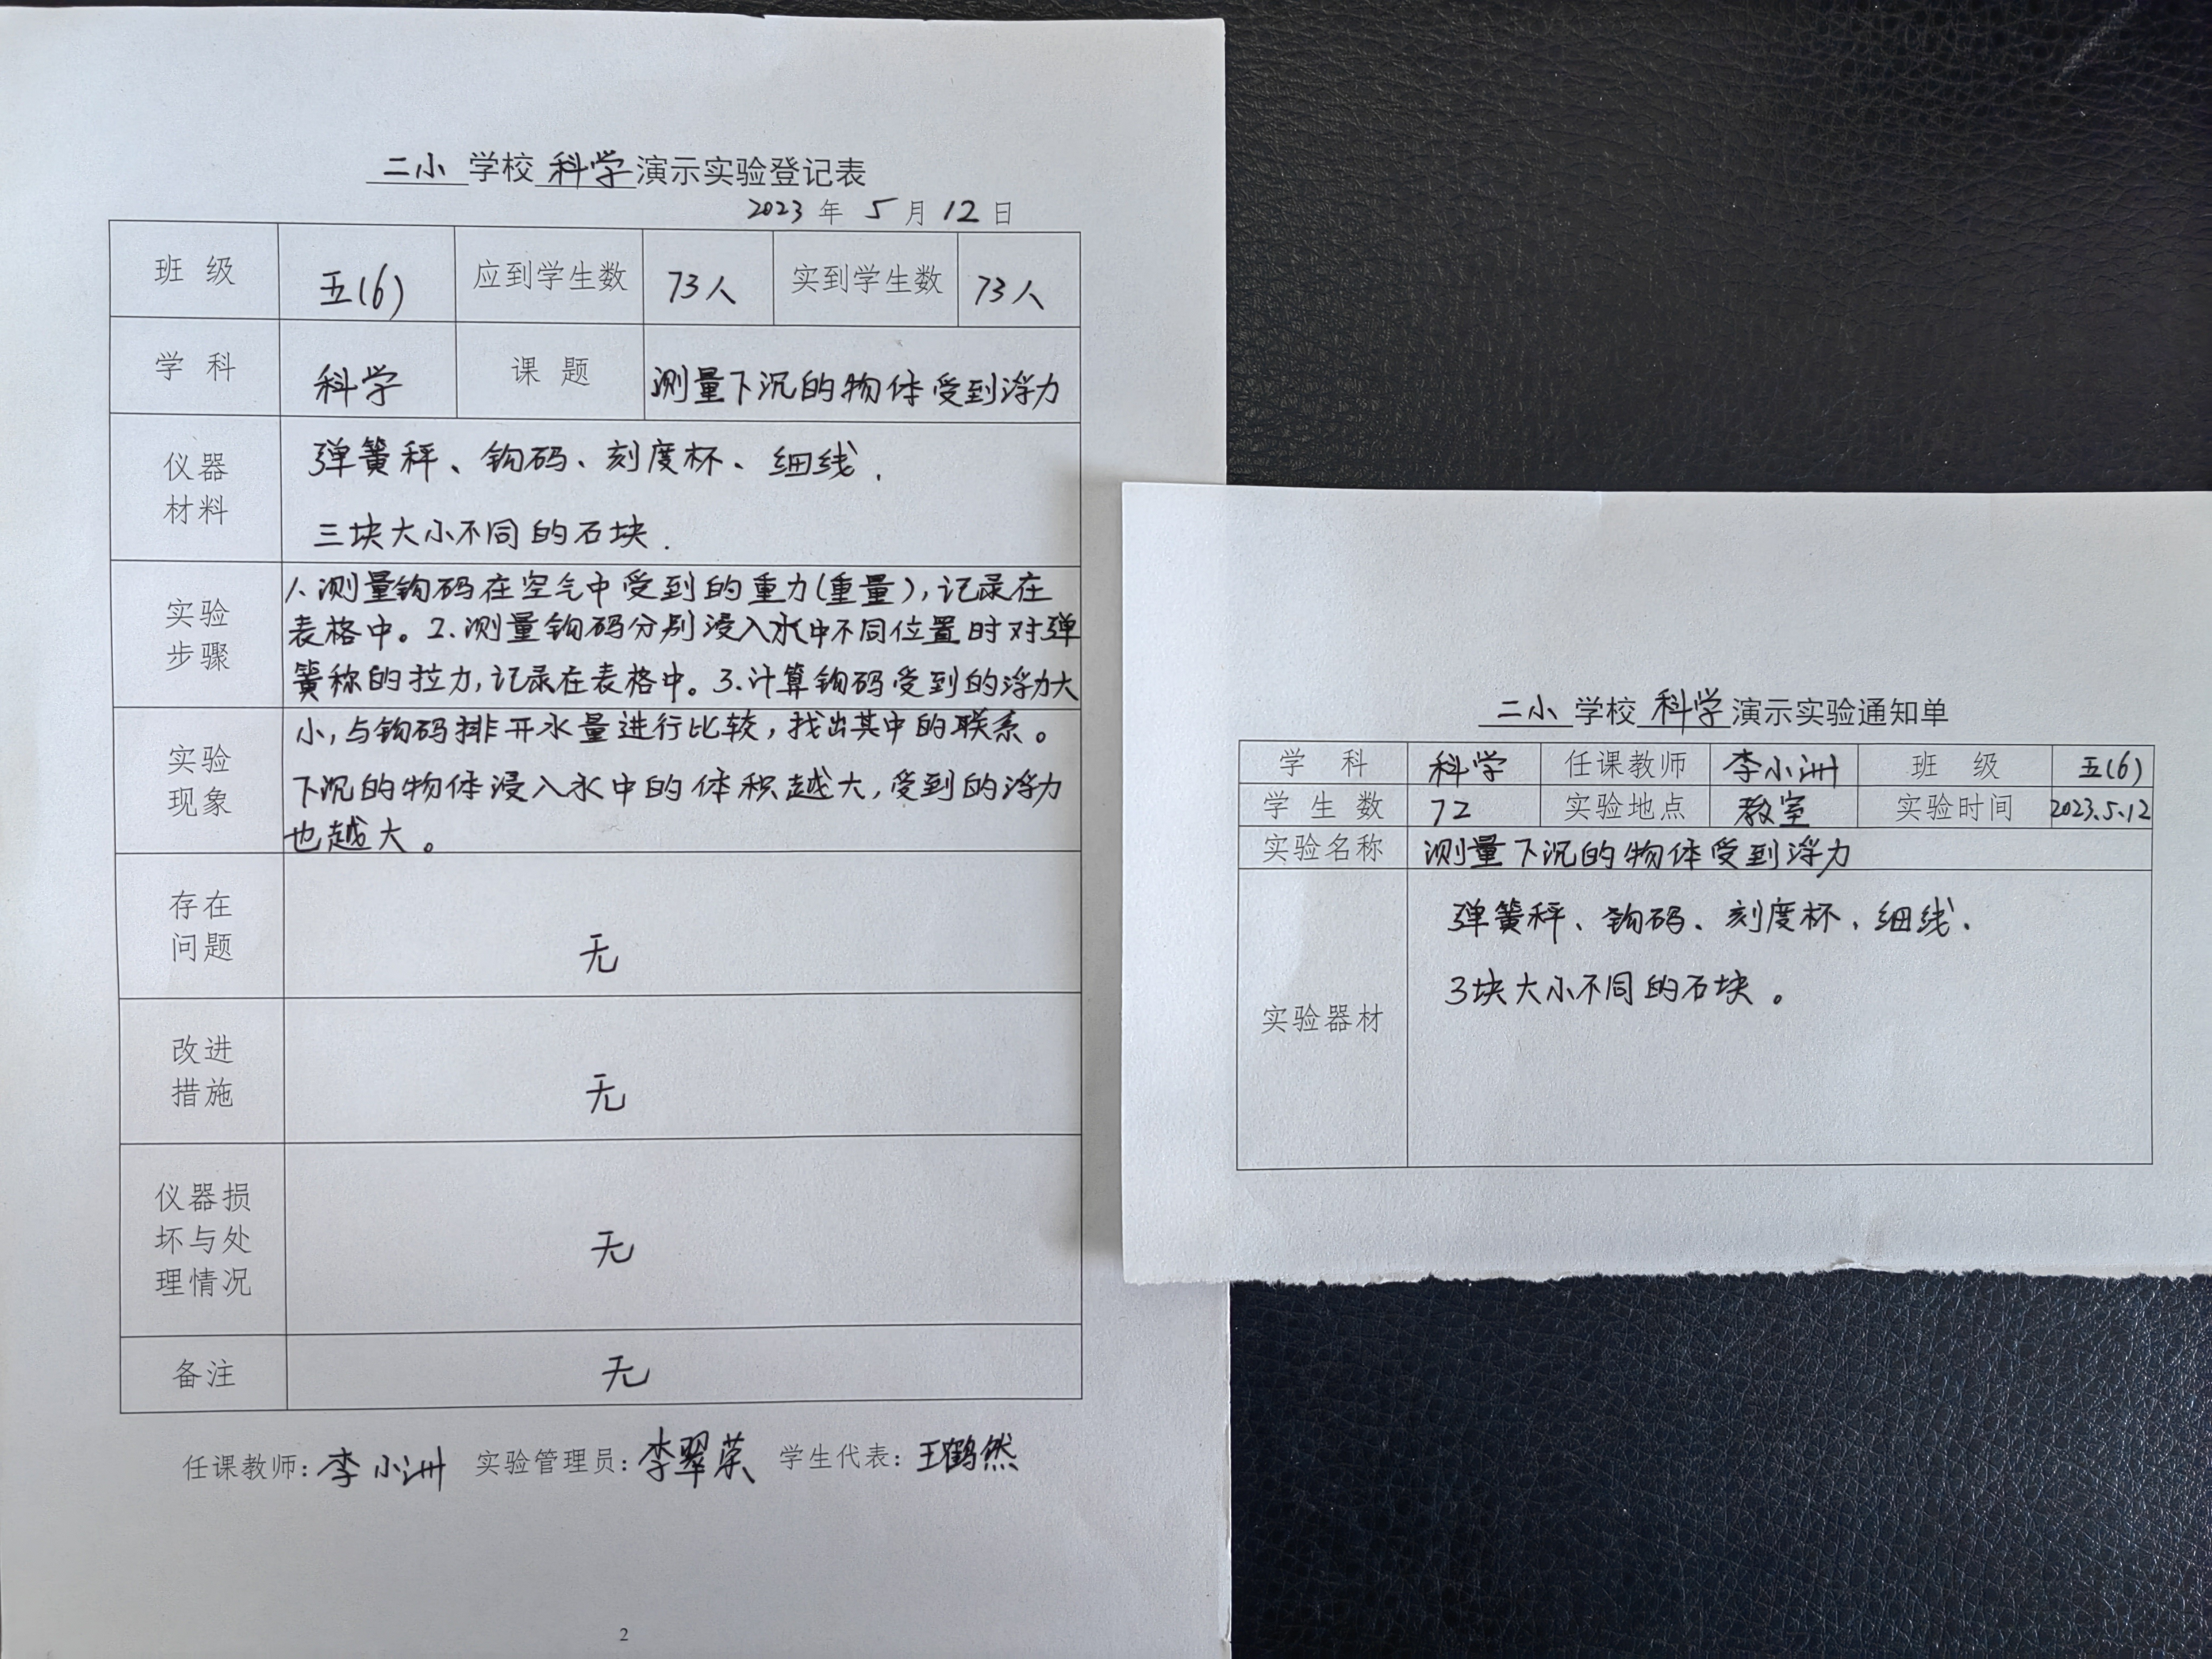 二小 学校 科学 演示实验登记表
2023 年 5 月 12 日
班 级 五(6) 应到学生数 73人 实到学生数 73人
学 科 科学 课 题 测量下沉的物体受到浮力
仪器材料 弹簧秤、钩码、刻度杯、细线.
三块大小不同的石块.
实验步骤 1.测量钩码在空气中受到的重力(重量),记录在
表格中。2.测量钩码分别浸入水中不同位置时对弹
簧称的拉力,记录在表格中。3.计算钩码受到的浮力大
小,与钩码排开水量进行比较,找出其中的联系。
实验现象 下沉的物体浸入水中的体积越大,受到的浮力
也越大。
存在问题 无
改进措施 无
仪器损坏与处理情况 无
备注 无
任课教师:李小洲 实验管理员:李翠荣 学生代表:王鹤然
2
二小 学校 科学 演示实验通知单
学 科 科学 任课教师 李小洲 班 级 五(6)
学 生 数 72 实验地点 教室 实验时间 2023.5.12
实验名称 测量下沉的物体受到浮力
实验器材 弹簧秤、钩码、刻度杯、细线、
3块大小不同的石块。